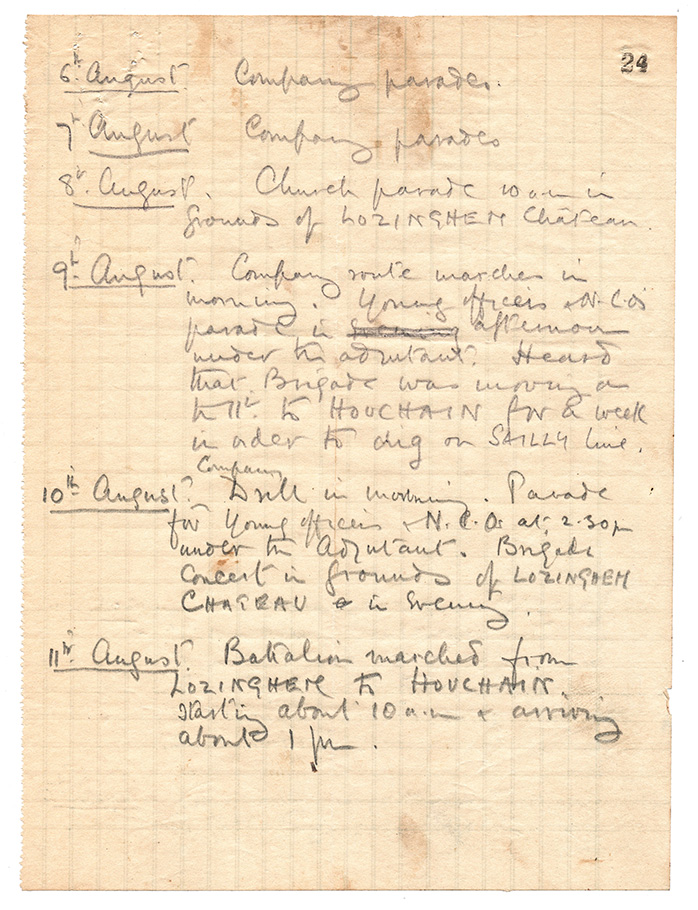 24
6th August. Company parades.
7th August Company parades
8th August. Church parade 10 a.m in
grounds of LOZINGHEM Château.
9th August. Company route marches in
morning. Young officers & N.C.O's
parade in evening afternoon
under the adjutant. Heard
that Brigade was moving on
the 11th to HOUCHAIN for a week
in order to dig on SAILLY line.
Company
10th August. Drill in morning. Parade
for Young officers & N.C.O. at 2.30 pm
under the Adjutant. Brigade
Concert in grounds of LOZINGHEM
CHATEAU in Evening.
11th August. Battalion marched from
LOZINGHEM to HOUCHAIN.
starting about 10 a.m & arriving
about 1 pm.